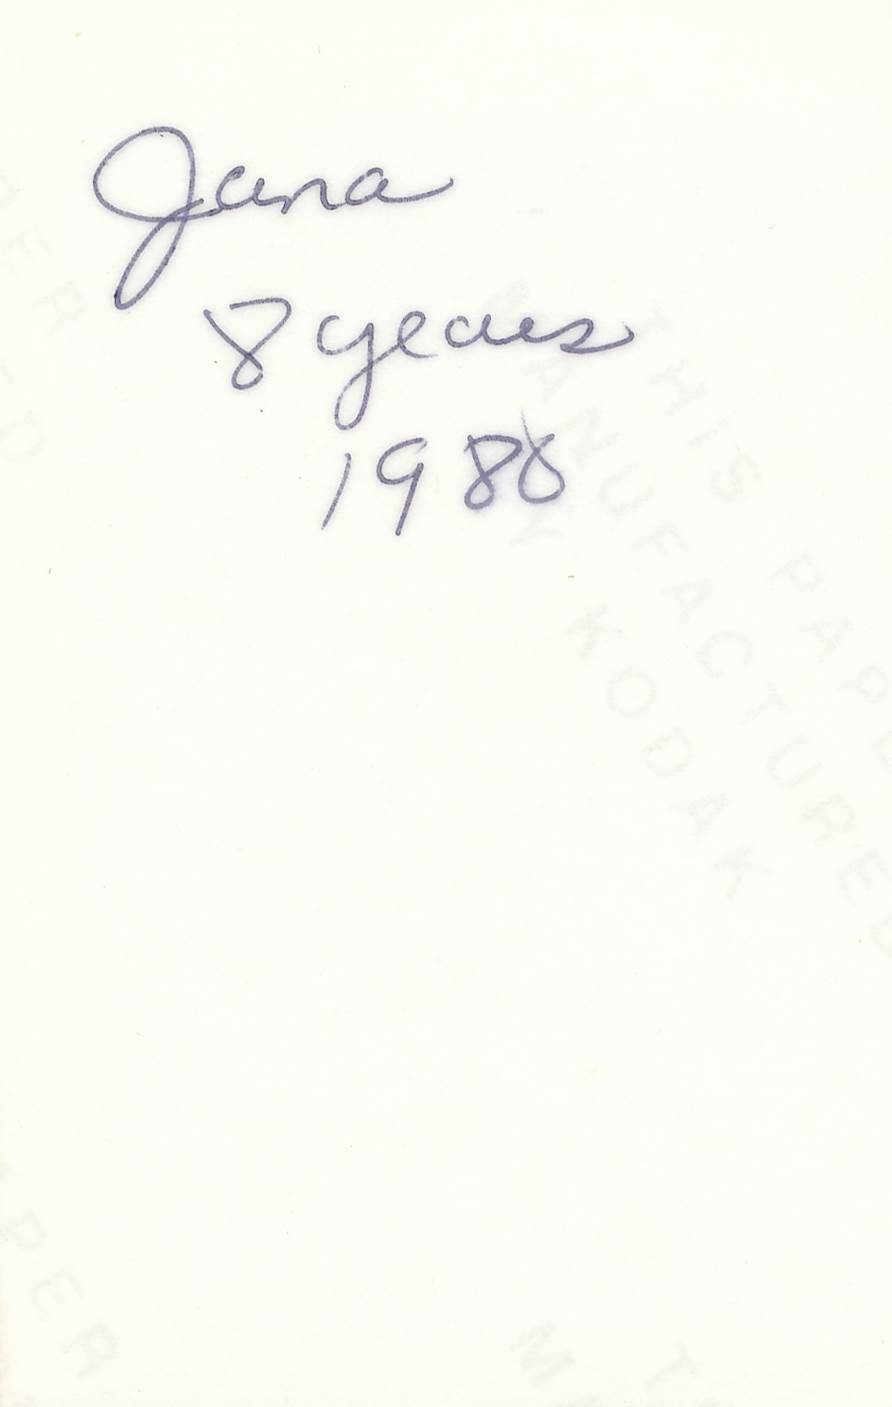 Jana
8 years
1980
THIS PAPER
MANUFACTURED
BY KODAK